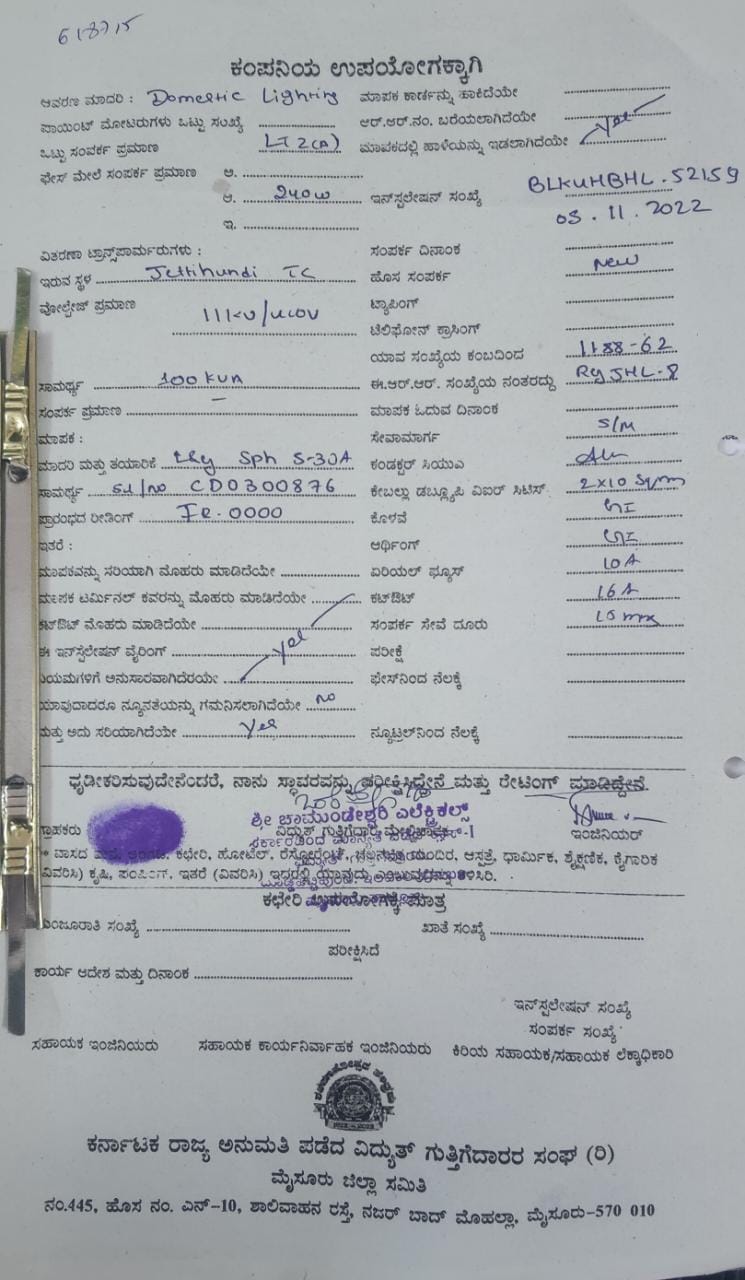 618715
ಕಂಪನಿಯ ಉಪಯೋಗಕ್ಕಾಗಿ
ಆವರಣ ಮಾದರಿ : Domestic Lighting ಮಾಪಕ ಕಾರ್ಡನ್ನು ಹಾಕಿದೆಯೇ
ಪಾಯಿಂಟ್ ಮೋಟರುಗಳು ಒಟ್ಟು ಸಂಖ್ಯೆ ಆರ್.ಆರ್.ನಂ. ಬರೆಯಲಾಗಿದೆಯೇ
ಒಟ್ಟು ಸಂಪರ್ಕ ಪ್ರಮಾಣ LT 2(A) ಮಾಪಕದಲ್ಲಿ ಹಾಳೆಯನ್ನು ಇಡಲಾಗಿದೆಯೇ yes
ಫೇಸ್ ಮೇಲೆ ಸಂಪರ್ಕ ಪ್ರಮಾಣ ಅ.
ಆ. 240W ಇನ್‌ಸ್ಟಲೇಷನ್ ಸಂಖ್ಯೆ BLKUHBHL.52159
ಇ. 03.11.2022
ವಿತರಣಾ ಟ್ರಾನ್ಸ್‌ಪಾರ್ಮರುಗಳು : ಸಂಪರ್ಕ ದಿನಾಂಕ
ಇರುವ ಸ್ಥಳ Jettihundi TC ಹೊಸ ಸಂಪರ್ಕ New
ವೋಲ್ಟೇಜ್ ಪ್ರಮಾಣ 11KV/ ಟ್ಯಾಪಿಂಗ್
ಟೆಲಿಫೋನ್ ಕ್ರಾಸಿಂಗ್
ಯಾವ ಸಂಖ್ಯೆಯ ಕಂಬದಿಂದ 1188-62
ಸಾಮರ್ಥ್ಯ 100 KVA ಈ.ಆರ್.ಆರ್. ಸಂಖ್ಯೆಯ ನಂತರದ್ದು JHL-8
ಸಂಪರ್ಕ ಪ್ರಮಾಣ – ಮಾಪಕ ಓದುವ ದಿನಾಂಕ
ಮಾಪಕ : ಸೇವಾಮಾರ್ಗ S/M
ಮಾದರಿ ಮತ್ತು ತಯಾರಿಕೆ Sph 5-30A ಕಂಡಕ್ಟರ್ ಸಿಯುಎ
ಸಾಮರ್ಥ್ಯ Sl/No CD0300876 ಕೇಬಲ್ಲು ಡಬ್ಲ್ಯೂಪಿ ವಿಐಆರ್ ಸಿಟಿಸ್. 2x10 Sqmm
ಪ್ರಾರಂಭದ ರೀಡಿಂಗ್ IR.0000 ಕೊಳವೆ GI
ಇತರೆ : ಆರ್ಥಿಂಗ್ GI
ಮಾಪಕವನ್ನು ಸರಿಯಾಗಿ ಮೊಹರು ಮಾಡಿದೆಯೇ ಏರಿಯಲ್ ಫ್ಯೂಸ್ 10A
ಮಾಪಕ ಟರ್ಮಿನಲ್ ಕವರನ್ನು ಮೊಹರು ಮಾಡಿದೆಯೇ ಕಟ್‌ಔಟ್ 16A
ಕಟ್‌ಔಟ್ ಮೊಹರು ಮಾಡಿದೆಯೇ ಸಂಪರ್ಕ ಸೇವೆ ದೂರು
ಈ ಇನ್‌ಸ್ಟಲೇಷನ್ ವೈರಿಂಗ್ yes ಪರೀಕ್ಷೆ
ನಿಯಮಗಳಿಗೆ ಅನುಸಾರವಾಗಿದೆರಯೇ ಫೇಸ್‌ನಿಂದ ನೆಲಕ್ಕೆ
ಯಾವುದಾದರೂ ನ್ಯೂನತೆಯನ್ನು ಗಮನಿಸಲಾಗಿದೆಯೇ no
ಮತ್ತು ಅದು ಸರಿಯಾಗಿದೆಯೇ yes ನ್ಯೂಟ್ರಲ್‌ನಿಂದ ನೆಲಕ್ಕೆ
ಧೃಡೀಕರಿಸುವುದೇನೆಂದರೆ, ನಾನು ಸ್ಥಾವರವನ್ನು ಪರೀಕ್ಷಿಸಿದ್ದೇನೆ ಮತ್ತು ರೇಟಿಂಗ್ ಮಾಡಿದ್ದೇನೆ.
ಶ್ರೀ ಚಾಮುಂಡೇಶ್ವರಿ ಎಲೆಕ್ಟ್ರಿಕಲ್ಸ್
ಗ್ರಾಹಕರು ವಿದ್ಯುತ್ ಗುತ್ತಿಗೆದಾರ ಇಂಜಿನಿಯರ್
* ವಾಸದ ಕಛೇರಿ, ಹೋಟೆಲ್, ರೆಸ್ಟೋರೆಂಟ್, ಚಲನಚಿತ್ರ ಮಂದಿರ, ಆಸ್ಪತ್ರೆ, ಧಾರ್ಮಿಕ, ಶೈಕ್ಷಣಿಕ, ಕೈಗಾರಿಕ
(ವಿವರಿಸಿ) ಕೃಷಿ, ಪಂಪಿಂಗ್, ಇತರೆ (ವಿವರಿಸಿ)
ಕಛೇರಿ ಉಪಯೋಗಕ್ಕೆ ಮಾತ್ರ
ಮಂಜೂರಾತಿ ಸಂಖ್ಯೆ ಖಾತೆ ಸಂಖ್ಯೆ
ಪರೀಕ್ಷಿಸಿದೆ
ಕಾರ್ಯ ಆದೇಶ ಮತ್ತು ದಿನಾಂಕ
ಇನ್‌ಸ್ಟಲೇಷನ್ ಸಂಖ್ಯೆ
ಸಂಪರ್ಕ ಸಂಖ್ಯೆ
ಸಹಾಯಕ ಇಂಜಿನಿಯರು ಸಹಾಯಕ ಕಾರ್ಯನಿರ್ವಾಹಕ ಇಂಜಿನಿಯರು ಕಿರಿಯ ಸಹಾಯಕ/ಸಹಾಯಕ ಲೆಕ್ಕಾಧಿಕಾರಿ
ಕರ್ನಾಟಕ ರಾಜ್ಯ ಅನುಮತಿ ಪಡೆದ ವಿದ್ಯುತ್ ಗುತ್ತಿಗೆದಾರರ ಸಂಘ (ರಿ)
ಮೈಸೂರು ಜಿಲ್ಲಾ ಸಮಿತಿ
ನಂ.445, ಹೊಸ ನಂ. ಎನ್-10, ಶಾಲಿವಾಹನ ರಸ್ತೆ, ನಜರ್ ಬಾದ್ ಮೊಹಲ್ಲಾ, ಮೈಸೂರು-570 010